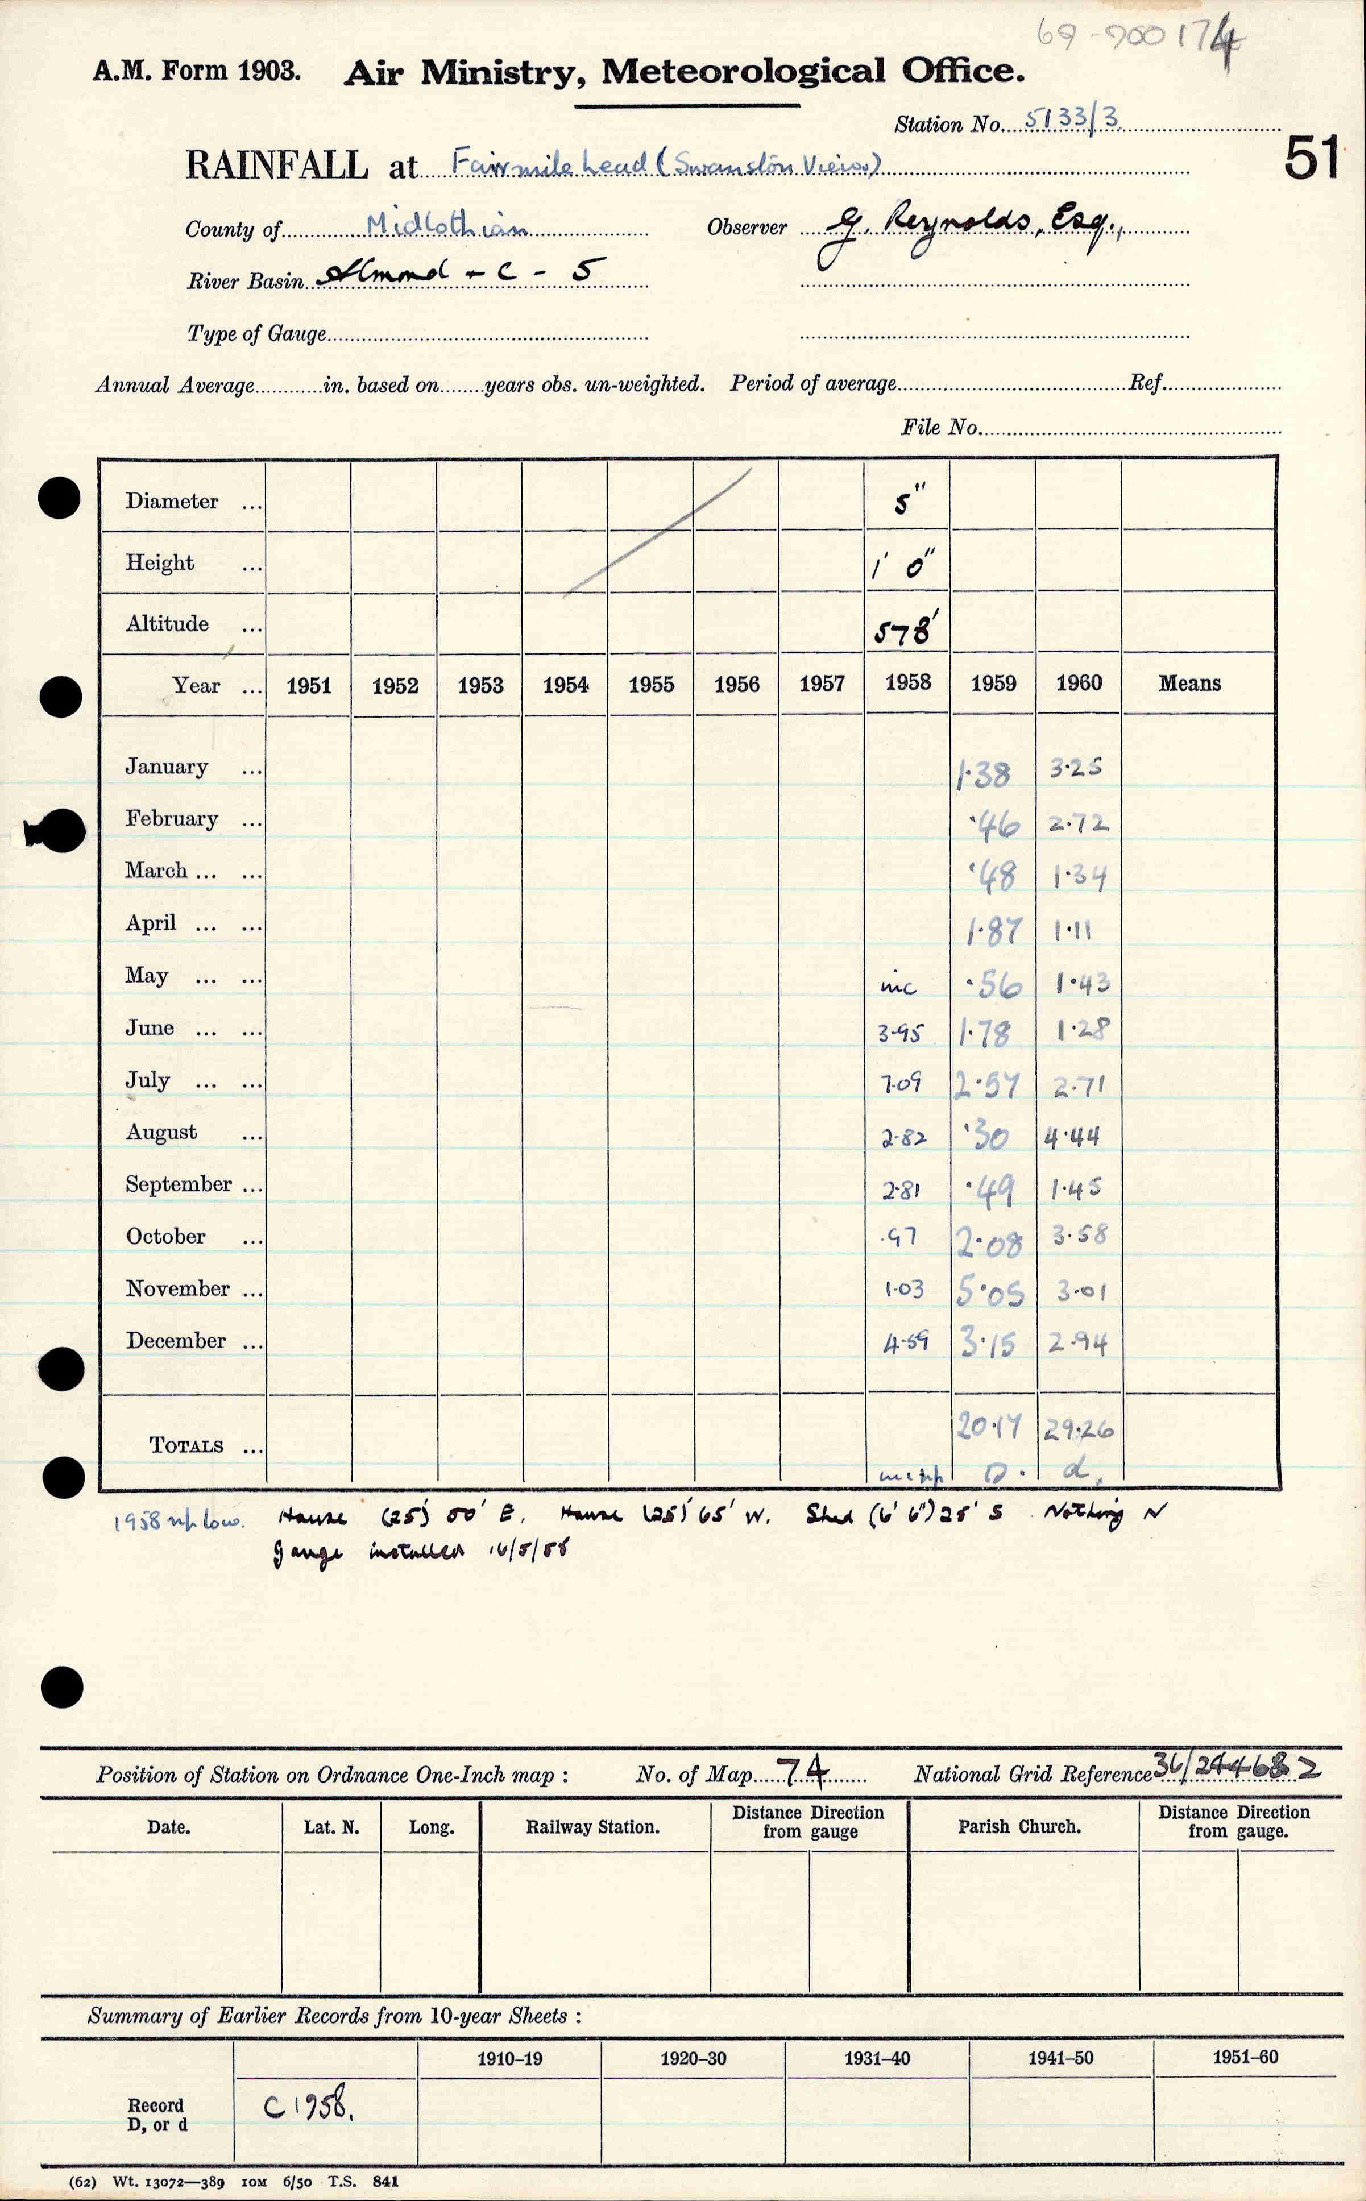 69-900174
A.M. Form 1903. Air Ministry, Meteorological Office.
Station No. 5133/3
51
RAINFALL at Fairmilehead (Swanston View)
County of Midlothian Observer G. Reynolds, Esq.,
River Basin Almond - C - 5
Type of Gauge
Annual Average in. based on years obs. un-weighted. Period of average Ref.
File No.
Diameter ... 5"
Height ... 1' 0"
Altitude ... 578'
Year ... 1951 1952 1953 1954 1955 1956 1957 1958 1959 1960 Means
January ... 1.38 3.25
February ... .46 2.72
March ... ... .48 1.34
April ... ... 1.87 1.11
May ... ... inc .56 1.43
June ... ... 3.95 1.78 1.28
July ... ... 7.09 2.57 2.71
August ... 2.82 .30 4.44
September ... 2.81 .49 1.45
October ... .97 2.08 3.58
November ... 1.03 5.05 3.01
December ... 4.59 3.15 2.94
TOTALS ... 20.17 29.26
D. d.
1958 low. House (25') 50' E. House (25') 65' W. Shed (6' 6") 25' S. Nothing N
Gauge installed 16/5/58
Position of Station on Ordnance One-Inch map : No. of Map 74 National Grid Reference 36/244682
Date. Lat. N. Long. Railway Station. Distance Direction from gauge Parish Church. Distance Direction from gauge.
Summary of Earlier Records from 10-year Sheets :
1910–19 1920–30 1931–40 1941–50 1951–60
Record D, or d C 1958.
(62) Wt. 13072—389 10M 6/50 T.S. 841